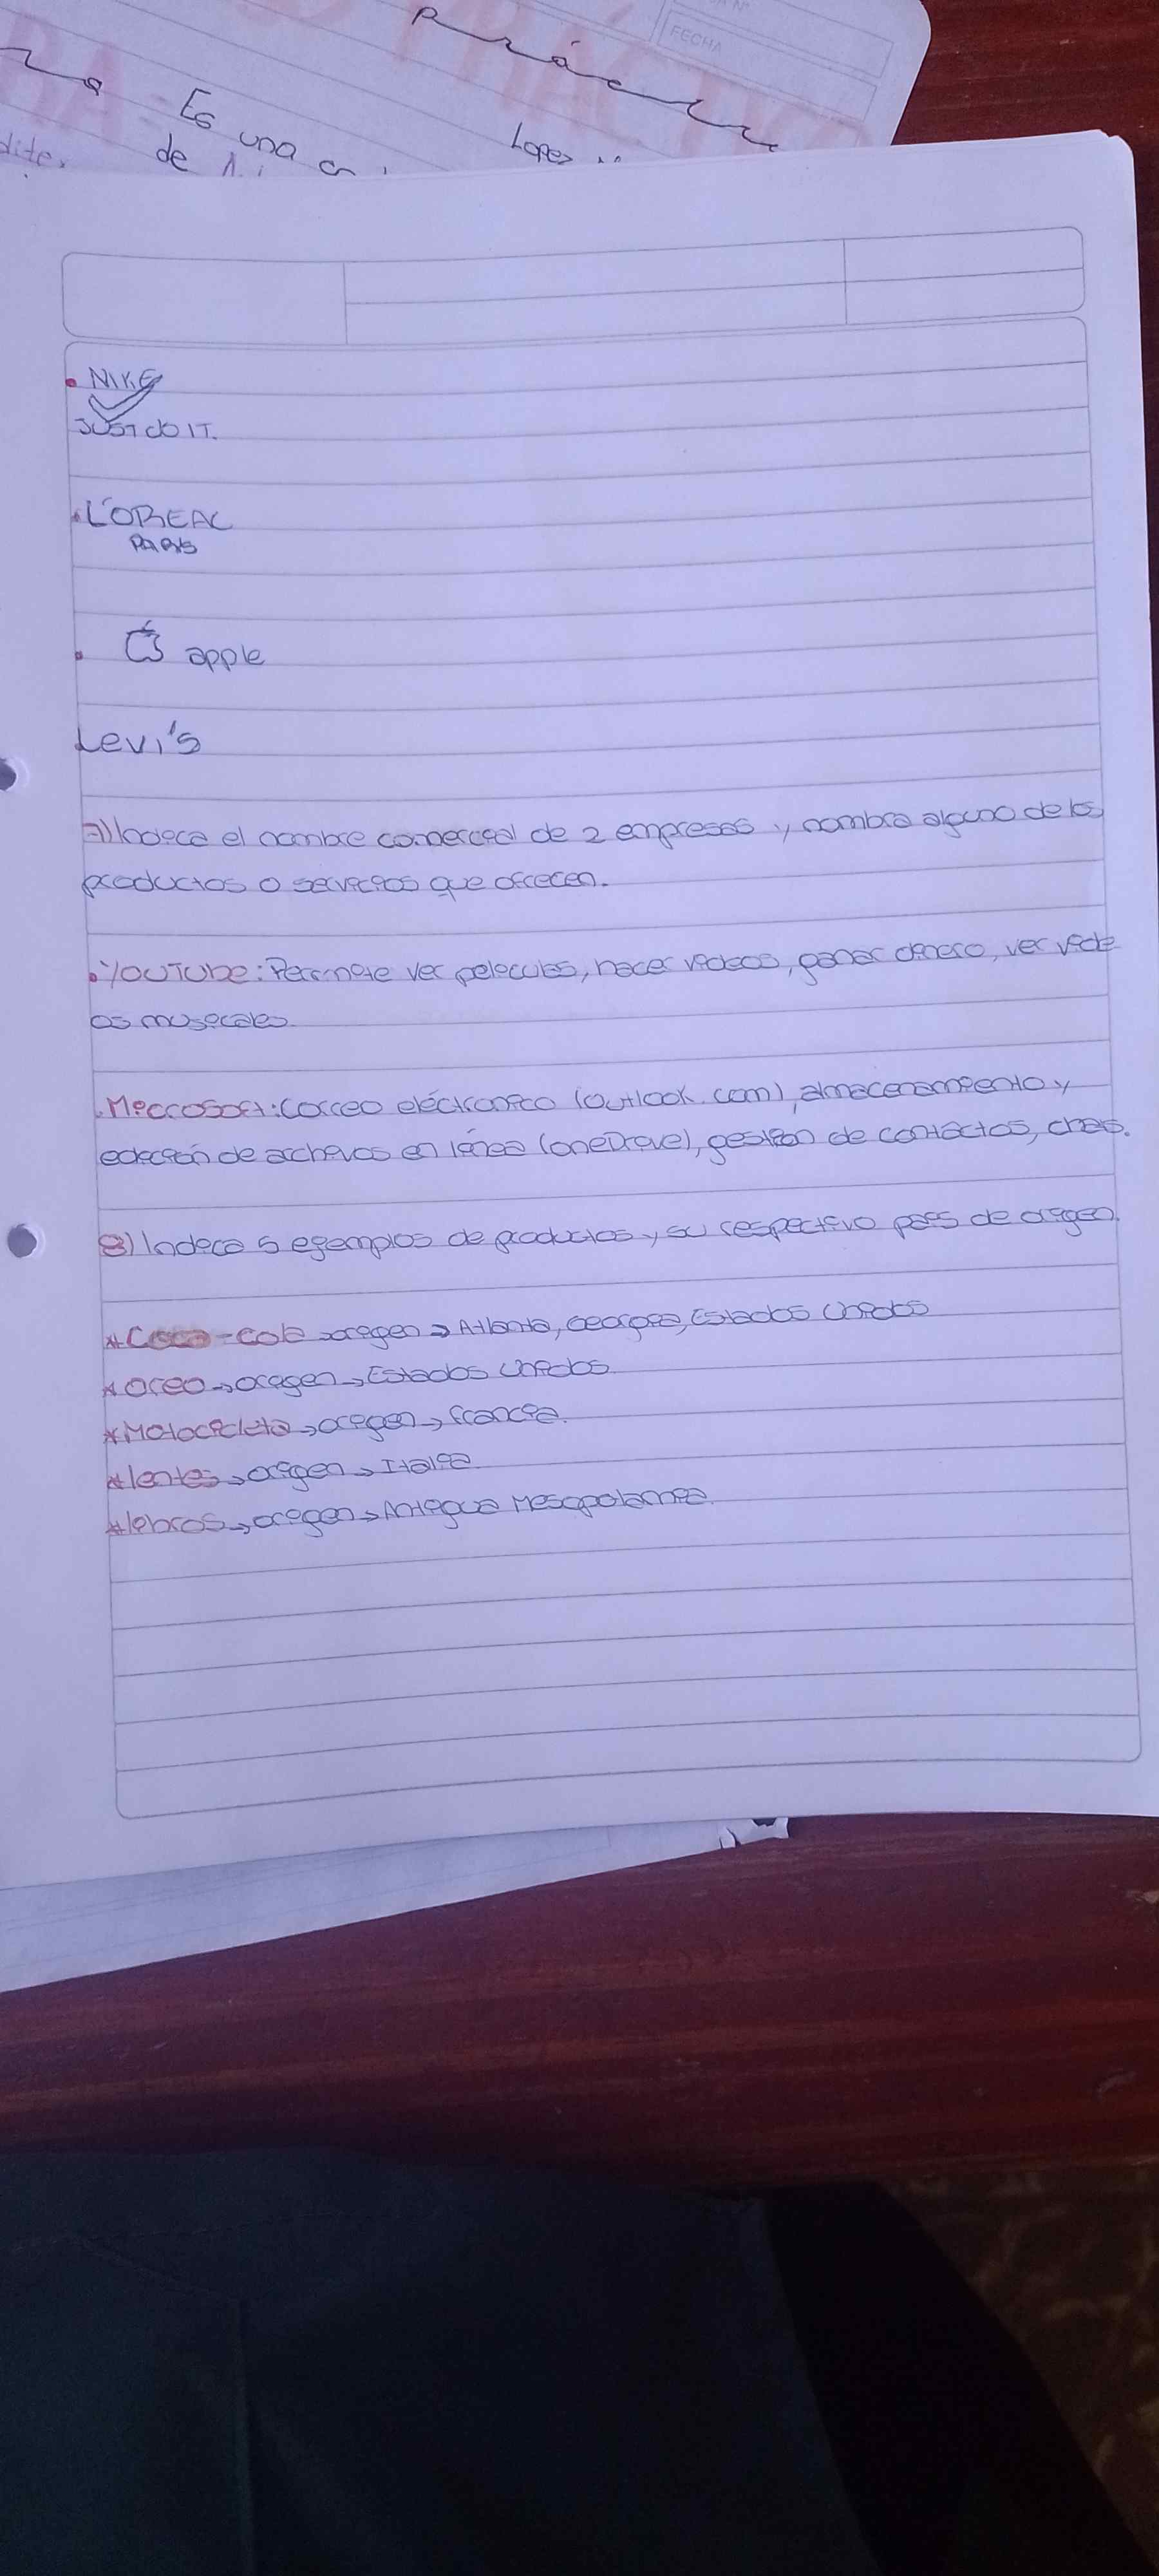 Práctic
FECHA
Es una
Lopez
dite.
de
• NIKE
JUST do IT.
• L'OREAL
PARIS
• apple
Levi's
7) Indica el nombre comercial de 2 empresas y nombra alguno de los
productos o servicios que ofrecen.
• YouTube: Permite ver peliculas, hacer videos, ganar dinero, ver vide
os musicales.
. Microsoft: Correo eléctronico (outlook.com), almacenamiento y
edición de archivos en línea (oneDrive), gestión de contactos, chats.
8) Indica 5 egemplos de productos y su respectivo pais de origen.
* Coca-cola → origen → Atlanta, Georgia, Estados Unidos
* Oreo → origen → Estados Unidos.
* Motocicleta → origen → francia.
* lentes → origen → Italia.
* libros → origen → Antigua Mesopotamia.